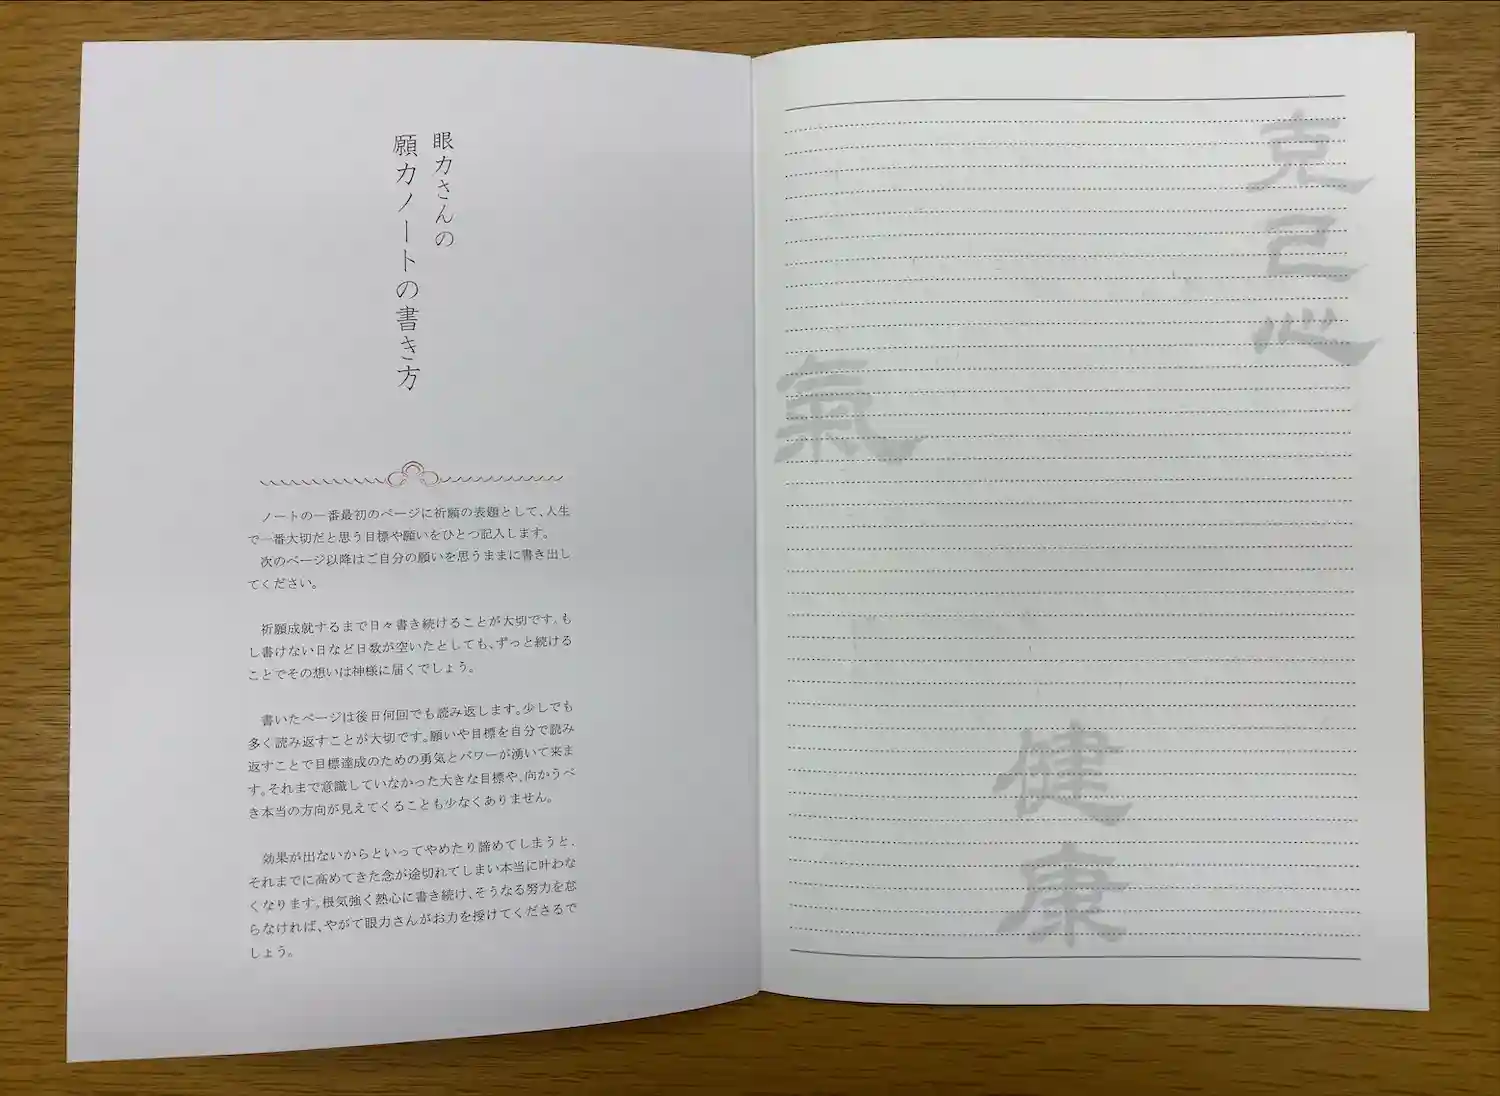 眼力さんの
願力ノートの書き方
ノートの一番最初のページに祈願の表題として、人生
で一番大切だと思う目標や願いをひとつ記入します。
次のページ以降はご自分の願いを思うままに書き出し
てください。
祈願成就するまで日々書き続けることが大切です。も
し書けない日など日数が空いたとしても、ずっと続ける
ことでその想いは神様に届くでしょう。
書いたページは後日何回でも読み返します。少しでも
多く読み返すことが大切です。願いや目標を自分で読み
返すことで目標達成のための勇気とパワーが湧いて来ま
す。それまで意識していなかった大きな目標や、向かうべ
き本当の方向が見えてくることも少なくありません。
効果が出ないからといってやめたり諦めてしまうと、
それまでに高めてきた念が途切れてしまい本当に叶わな
くなります。根気強く熱心に書き続け、そうなる努力を怠
らなければ、やがて眼力さんがお力を授けてくださるで
しょう。
克己心
氣
健康